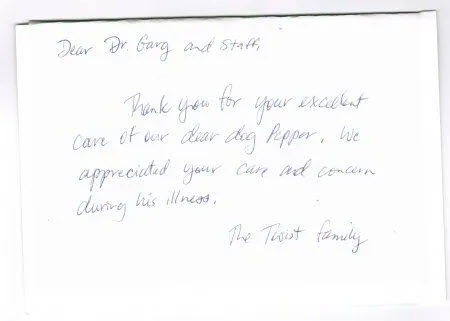 Dear Dr. Garg and Staff,
Thank you for your excellent
care of our dear dog Pepper. We
appreciated your care and concern
during his illness.
The Twist family